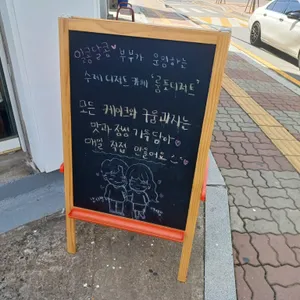 알콩달콩♡ 부부가 운영하는
수제 디저트 카페 '롱롱디저트'
모든 케이크와 구움과자는
맛과 정성 가득담아♡
매일 직접 만들어요